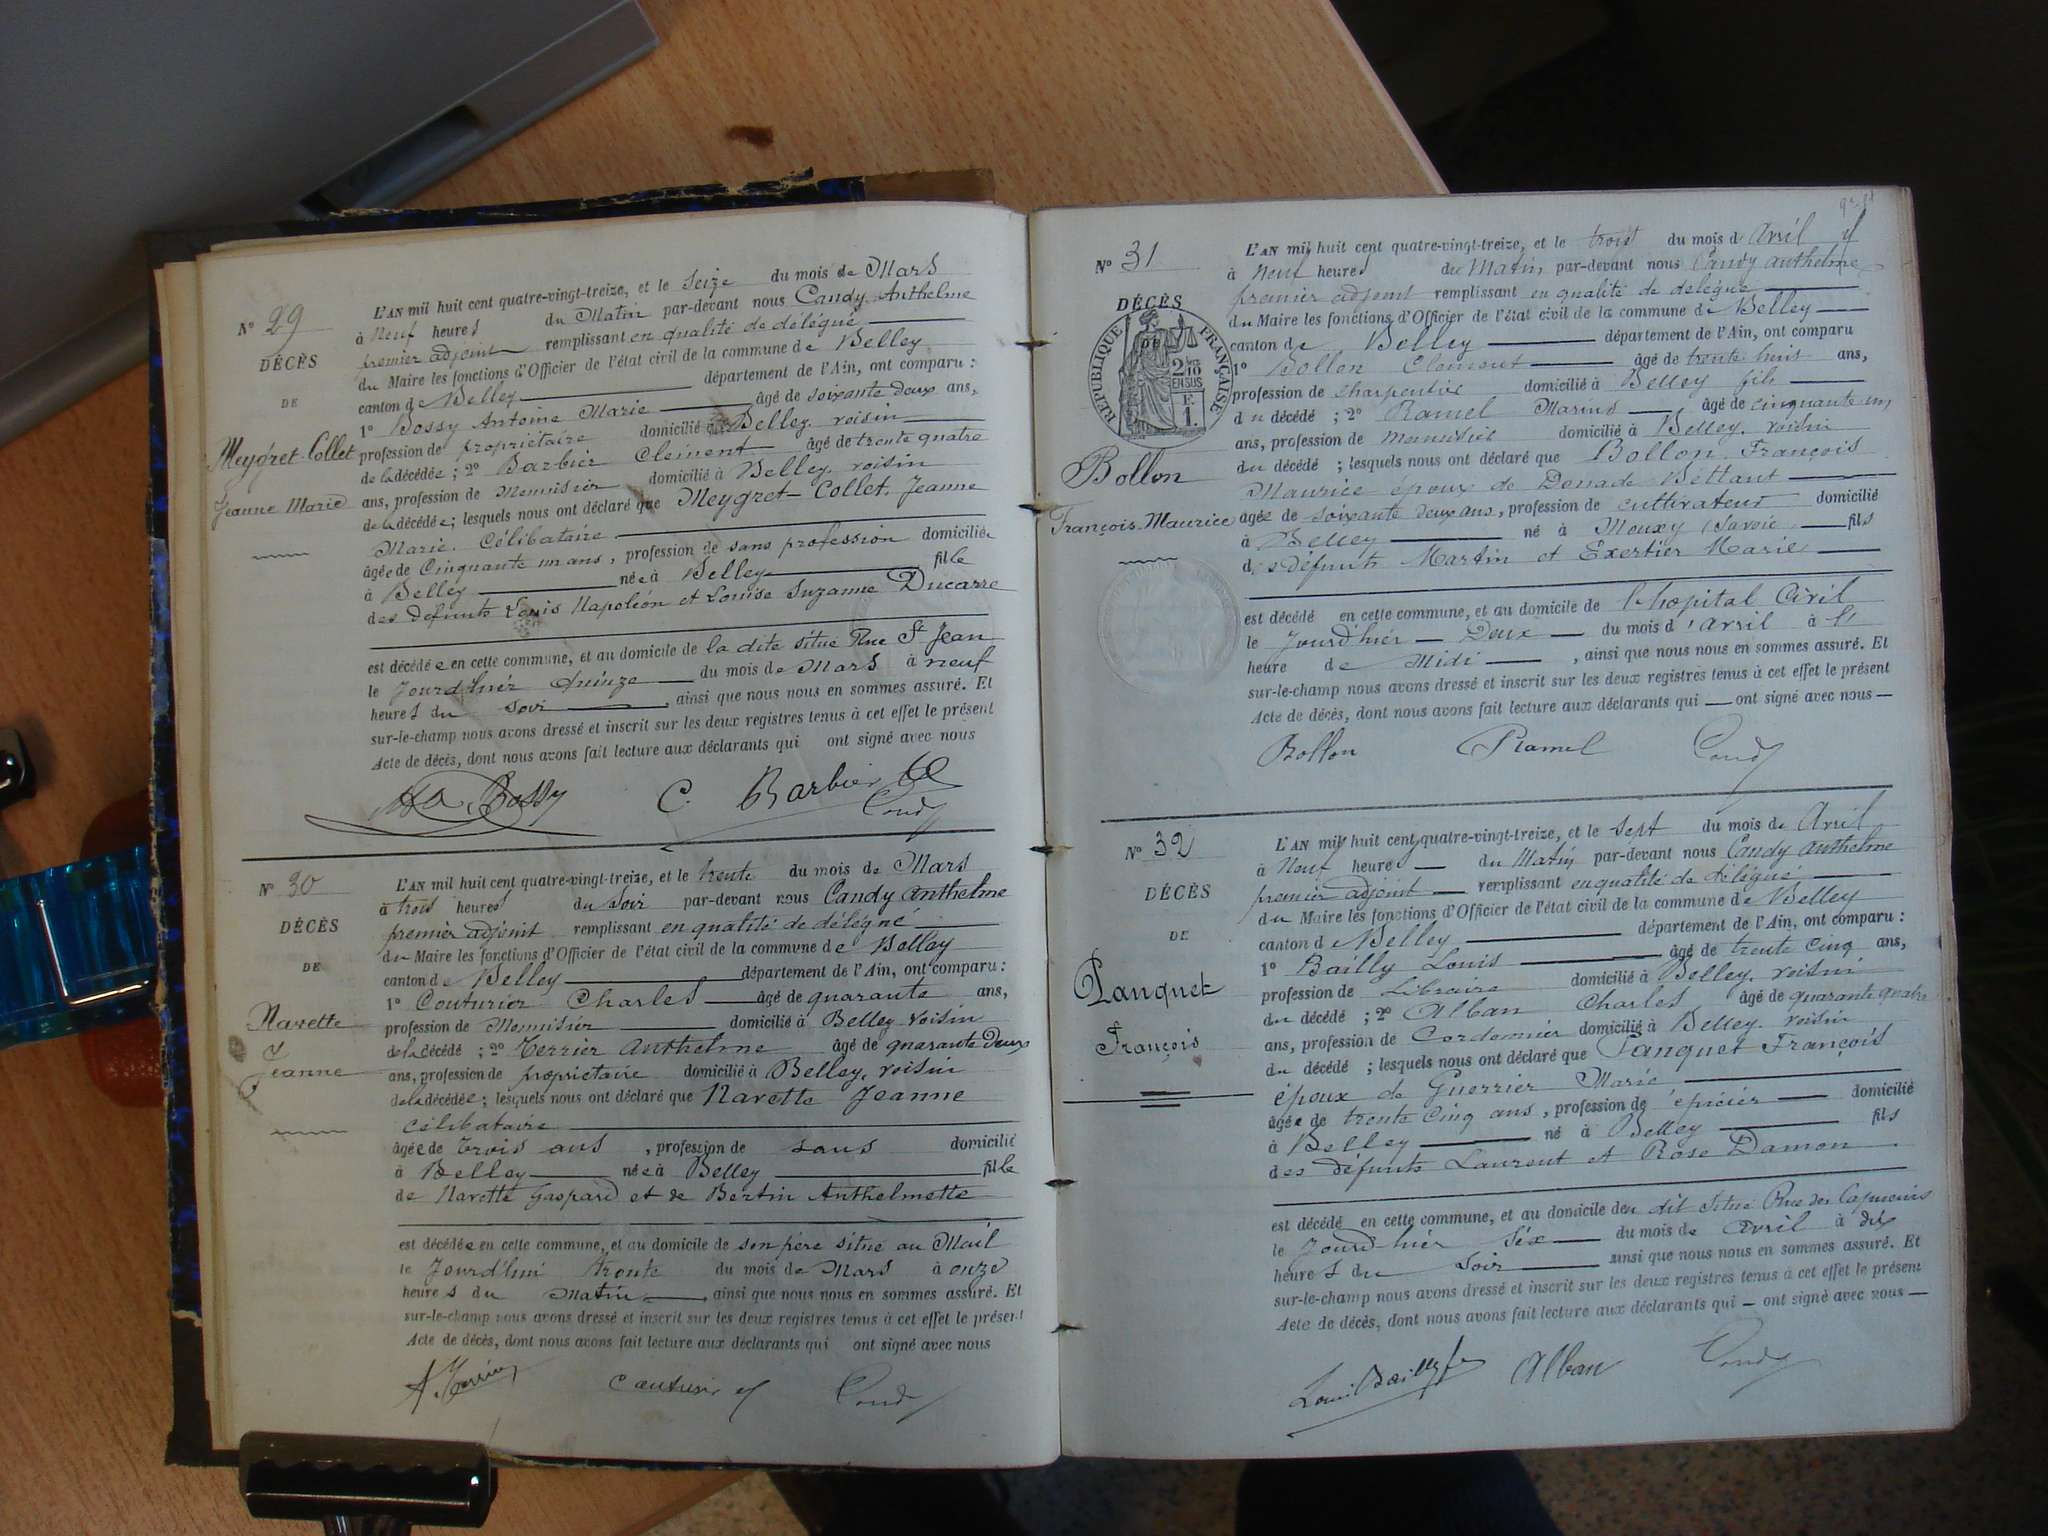 N° 29
DÉCÈS
DE
Meygret-Collet
Jeanne Marie
L'AN mil huit cent quatre-vingt-treize, et le seize du mois de Mars
à Neuf heures du Matin par-devant nous Candy Anthelme
premier adjoint remplissant en qualité de délégué
du Maire les fonctions d'Officier de l'état civil de la commune de Belley
canton de Belley département de l'Ain, ont comparu :
1° Bossy Antoine Marie âgé de soixante deux ans,
profession de propriétaire domicilié à Belley, voisin
de la décédée ; 2° Barbier Clément âgé de trente quatre
ans, profession de Menuisier domicilié à Belley, voisin
de la décédée ; lesquels nous ont déclaré que Meygret-Collet, Jeanne
Marie. Célibataire
âgée de Cinquante un ans, profession de sans profession domiciliée
à Belley née à Belley fille
des défunts Louis Napoléon et Louise Suzanne Ducarre
est décédée en cette commune, et au domicile de la dite situé Rue St Jean
le jourd'hier Quinze du mois de Mars à neuf
heures du soir, ainsi que nous nous en sommes assuré. Et
sur-le-champ nous avons dressé et inscrit sur les deux registres tenus à cet effet le présent
Acte de décès, dont nous avons fait lecture aux déclarants qui ont signé avec nous
Bossy C. Barbier Candy
N° 30
DÉCÈS
DE
Navette
Jeanne
L'AN mil huit cent quatre-vingt-treize, et le trente du mois de Mars
à trois heures du soir par-devant nous Candy Anthelme
premier adjoint remplissant en qualité de délégué
du Maire les fonctions d'Officier de l'état civil de la commune de Belley
canton de Belley département de l'Ain, ont comparu :
1° Couturier Charles âgé de quarante ans,
profession de Menuisier domicilié à Belley voisin
de la décédé ; 2° Terrier Anthelme âgé de quarante deux
ans, profession de propriétaire domicilié à Belley, voisin
de la décédée ; lesquels nous ont déclaré que Navette Jeanne
célibataire
âgée de trois ans, profession de sans domicilié
à Belley née à Belley fille
de Navette Gaspard et de Bertin Anthelmette
est décédée en cette commune, et au domicile de son père situé au Mail
le jourd'hui trente du mois de Mars à onze
heures du matin, ainsi que nous nous en sommes assuré. Et
sur-le-champ nous avons dressé et inscrit sur les deux registres tenus à cet effet le présent
Acte de décès, dont nous avons fait lecture aux déclarants qui ont signé avec nous
A. Terrier Couturier Candy
N° 31
DÉCÈS
DE
RÉPUBLIQUE FRANÇAISE
2/10
EN SUS
F.
1.
Bollon
François Maurice
L'AN mil huit cent quatre-vingt-treize, et le trois du mois d'Avril
à Neuf heures du Matin par-devant nous Candy Anthelme
premier adjoint remplissant en qualité de délégué
du Maire les fonctions d'Officier de l'état civil de la commune de Belley
canton de Belley département de l'Ain, ont comparu
1° Bollon Clément âgé de trente huit ans,
profession de charpentier domicilié à Belley fils
du décédé ; 2° Ramel Marius âgé de cinquante un
ans, profession de menuisier domicilié à Belley. voisin
du décédé ; lesquels nous ont déclaré que Bollon François
Maurice époux de Donade Bettant
âgé de soixante deux ans, profession de cultivateur domicilié
à Belley né à Mouxy (Savoie fils
des défunts Martin et Exertier Marie
est décédé en cette commune, et au domicile de l'hôpital Civil
le jourd'hier Deux du mois d'Avril à
heure de Midi, ainsi que nous nous en sommes assuré. Et
sur-le-champ nous avons dressé et inscrit sur les deux registres tenus à cet effet le présent
Acte de décès, dont nous avons fait lecture aux déclarants qui ont signé avec nous
Bollon Ramel Candy
N° 32
DÉCÈS
DE
Panquet
François
L'AN mil huit cent quatre-vingt-treize, et le sept du mois de Avril
à Neuf heures du Matin par-devant nous Candy Anthelme
premier adjoint remplissant en qualité de délégué
du Maire les fonctions d'Officier de l'état civil de la commune de Belley
canton de Belley département de l'Ain, ont comparu :
1° Bailly Louis âgé de trente cinq ans,
profession de Libraire domicilié à Belley, voisin
du décédé ; 2° Alban Charles âgé de quarante quatre
ans, profession de Cordonnier domicilié à Belley. voisin
du décédé ; lesquels nous ont déclaré que Panquet François
époux de Guerrier Marie
âgé de trente cinq ans, profession de épicier domicilié
à Belley né à Belley fils
des défunts Laurent et Rose Damon
est décédé en cette commune, et au domicile du dit situé Rue des Capucins
le jourd'hier six du mois de avril à dix
heures du soir ainsi que nous nous en sommes assuré. Et
sur-le-champ nous avons dressé et inscrit sur les deux registres tenus à cet effet le présent
Acte de décès, dont nous avons fait lecture aux déclarants qui ont signé avec nous
Louis Bailly Alban Candy